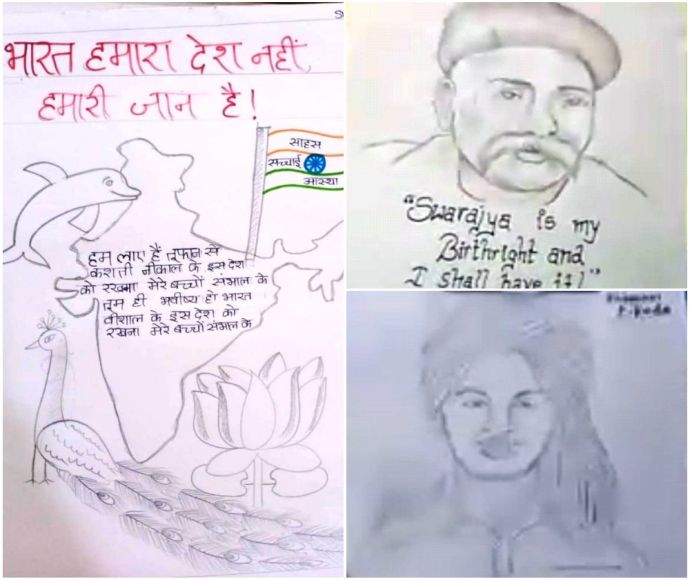 भारत हमारा देश नहीं,
हमारी जान है!
साहस
सच्चाई
आस्था
हम लाए हैं तूफान से
कशती नीकाल के इस देश
को रखना मेरे बच्चों संभाल के
तुम ही भवीष्य हो भारत
वीशाल के इस देश को
रखना मेरे बच्चों संभाल के
"Swarajya is my
Birthright and
I shall have it!"